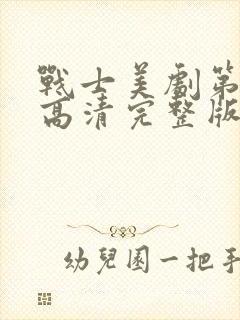 戰士美劇第
高清完整版
幼兒園一把手